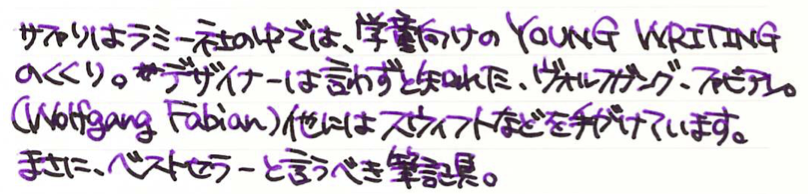 サファリはラミー社の中では、学童向けの YOUNG WRITING
のくくり。デザイナーは言わずと知れた、ヴォルフガング・ファビアン。
(Wolfgang Fabian)他にはスウィフトなどを手がけています。
まさに、ベストセラーと言うべき筆記具。